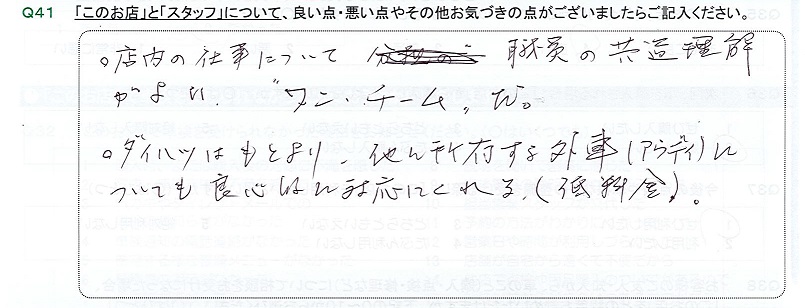 Q41 「このお店」と「スタッフ」について、良い点・悪い点やその他お気づきの点がございましたらご記入ください。
。店内の仕事について 職員の共通理解
がよい、"ワン・チーム"で。
。ダイハツはもとより、他に所有する外車(アウディ)に
ついても良心的に対応してくれる、(低料金)。